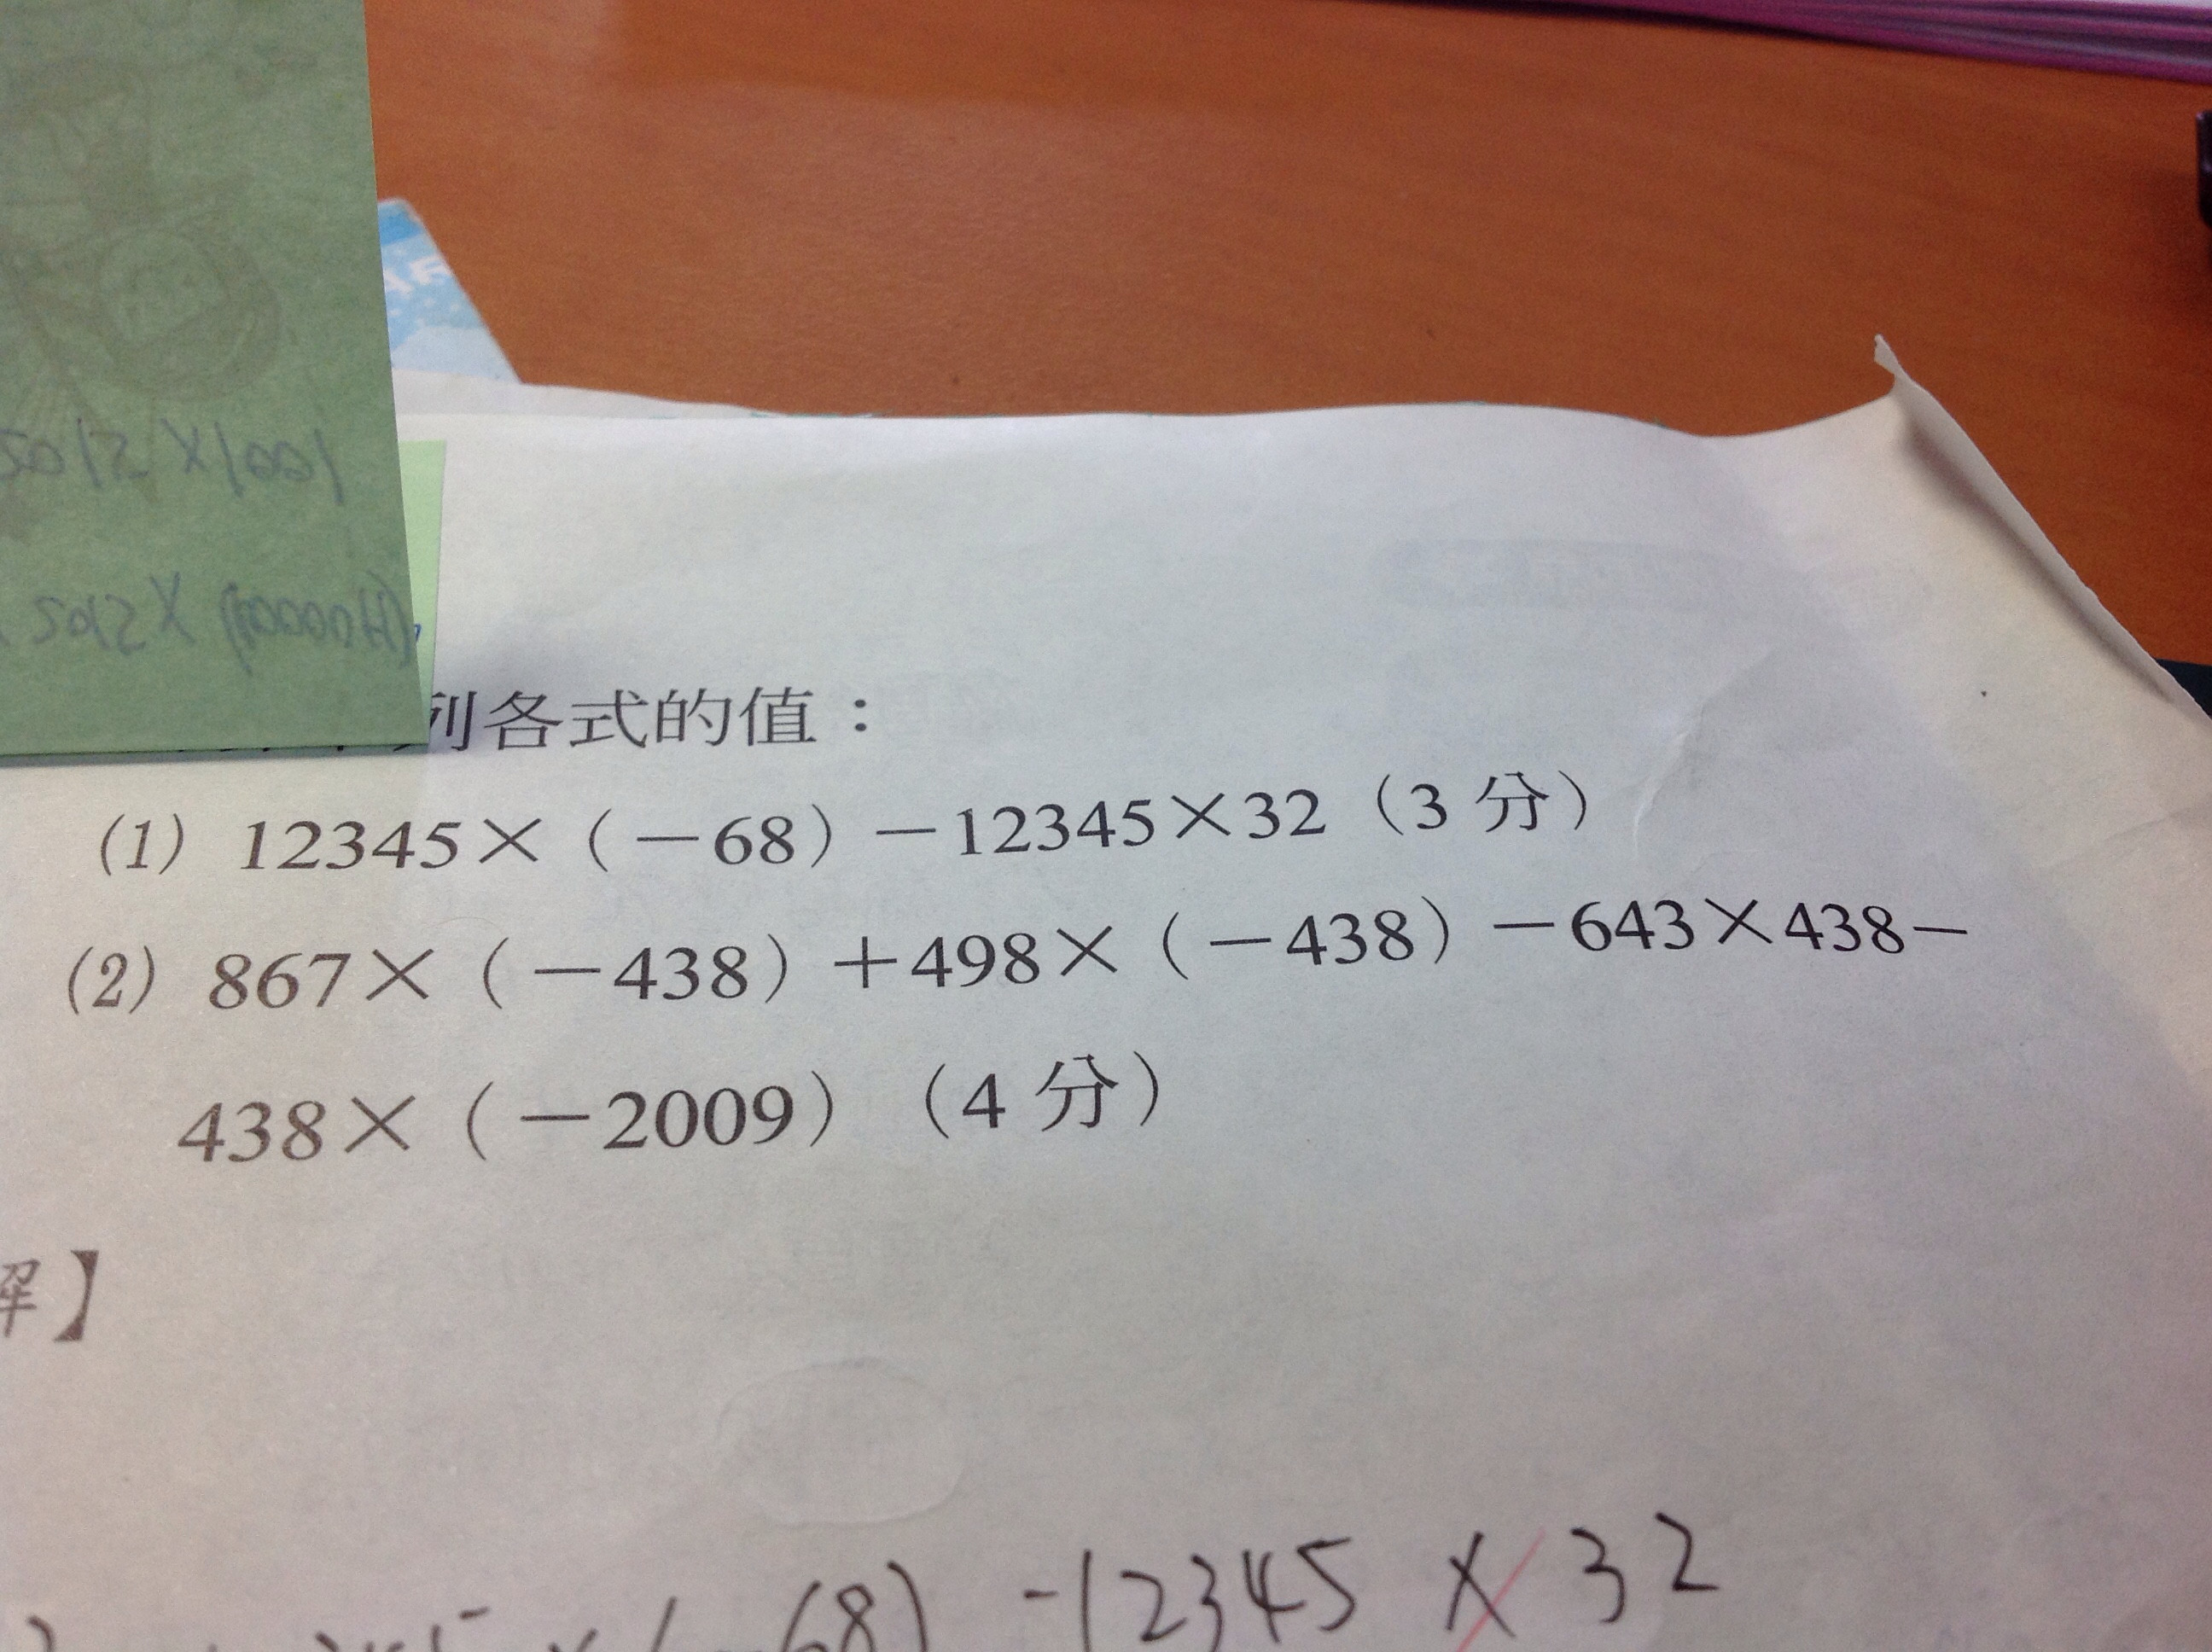 列各式的值：
(1) 12345×（－68）－12345×32（3 分）
(2) 867×（－438）＋498×（－438）－643×438－
438×（－2009）（4 分）
解】
(-68) -12345 × 32